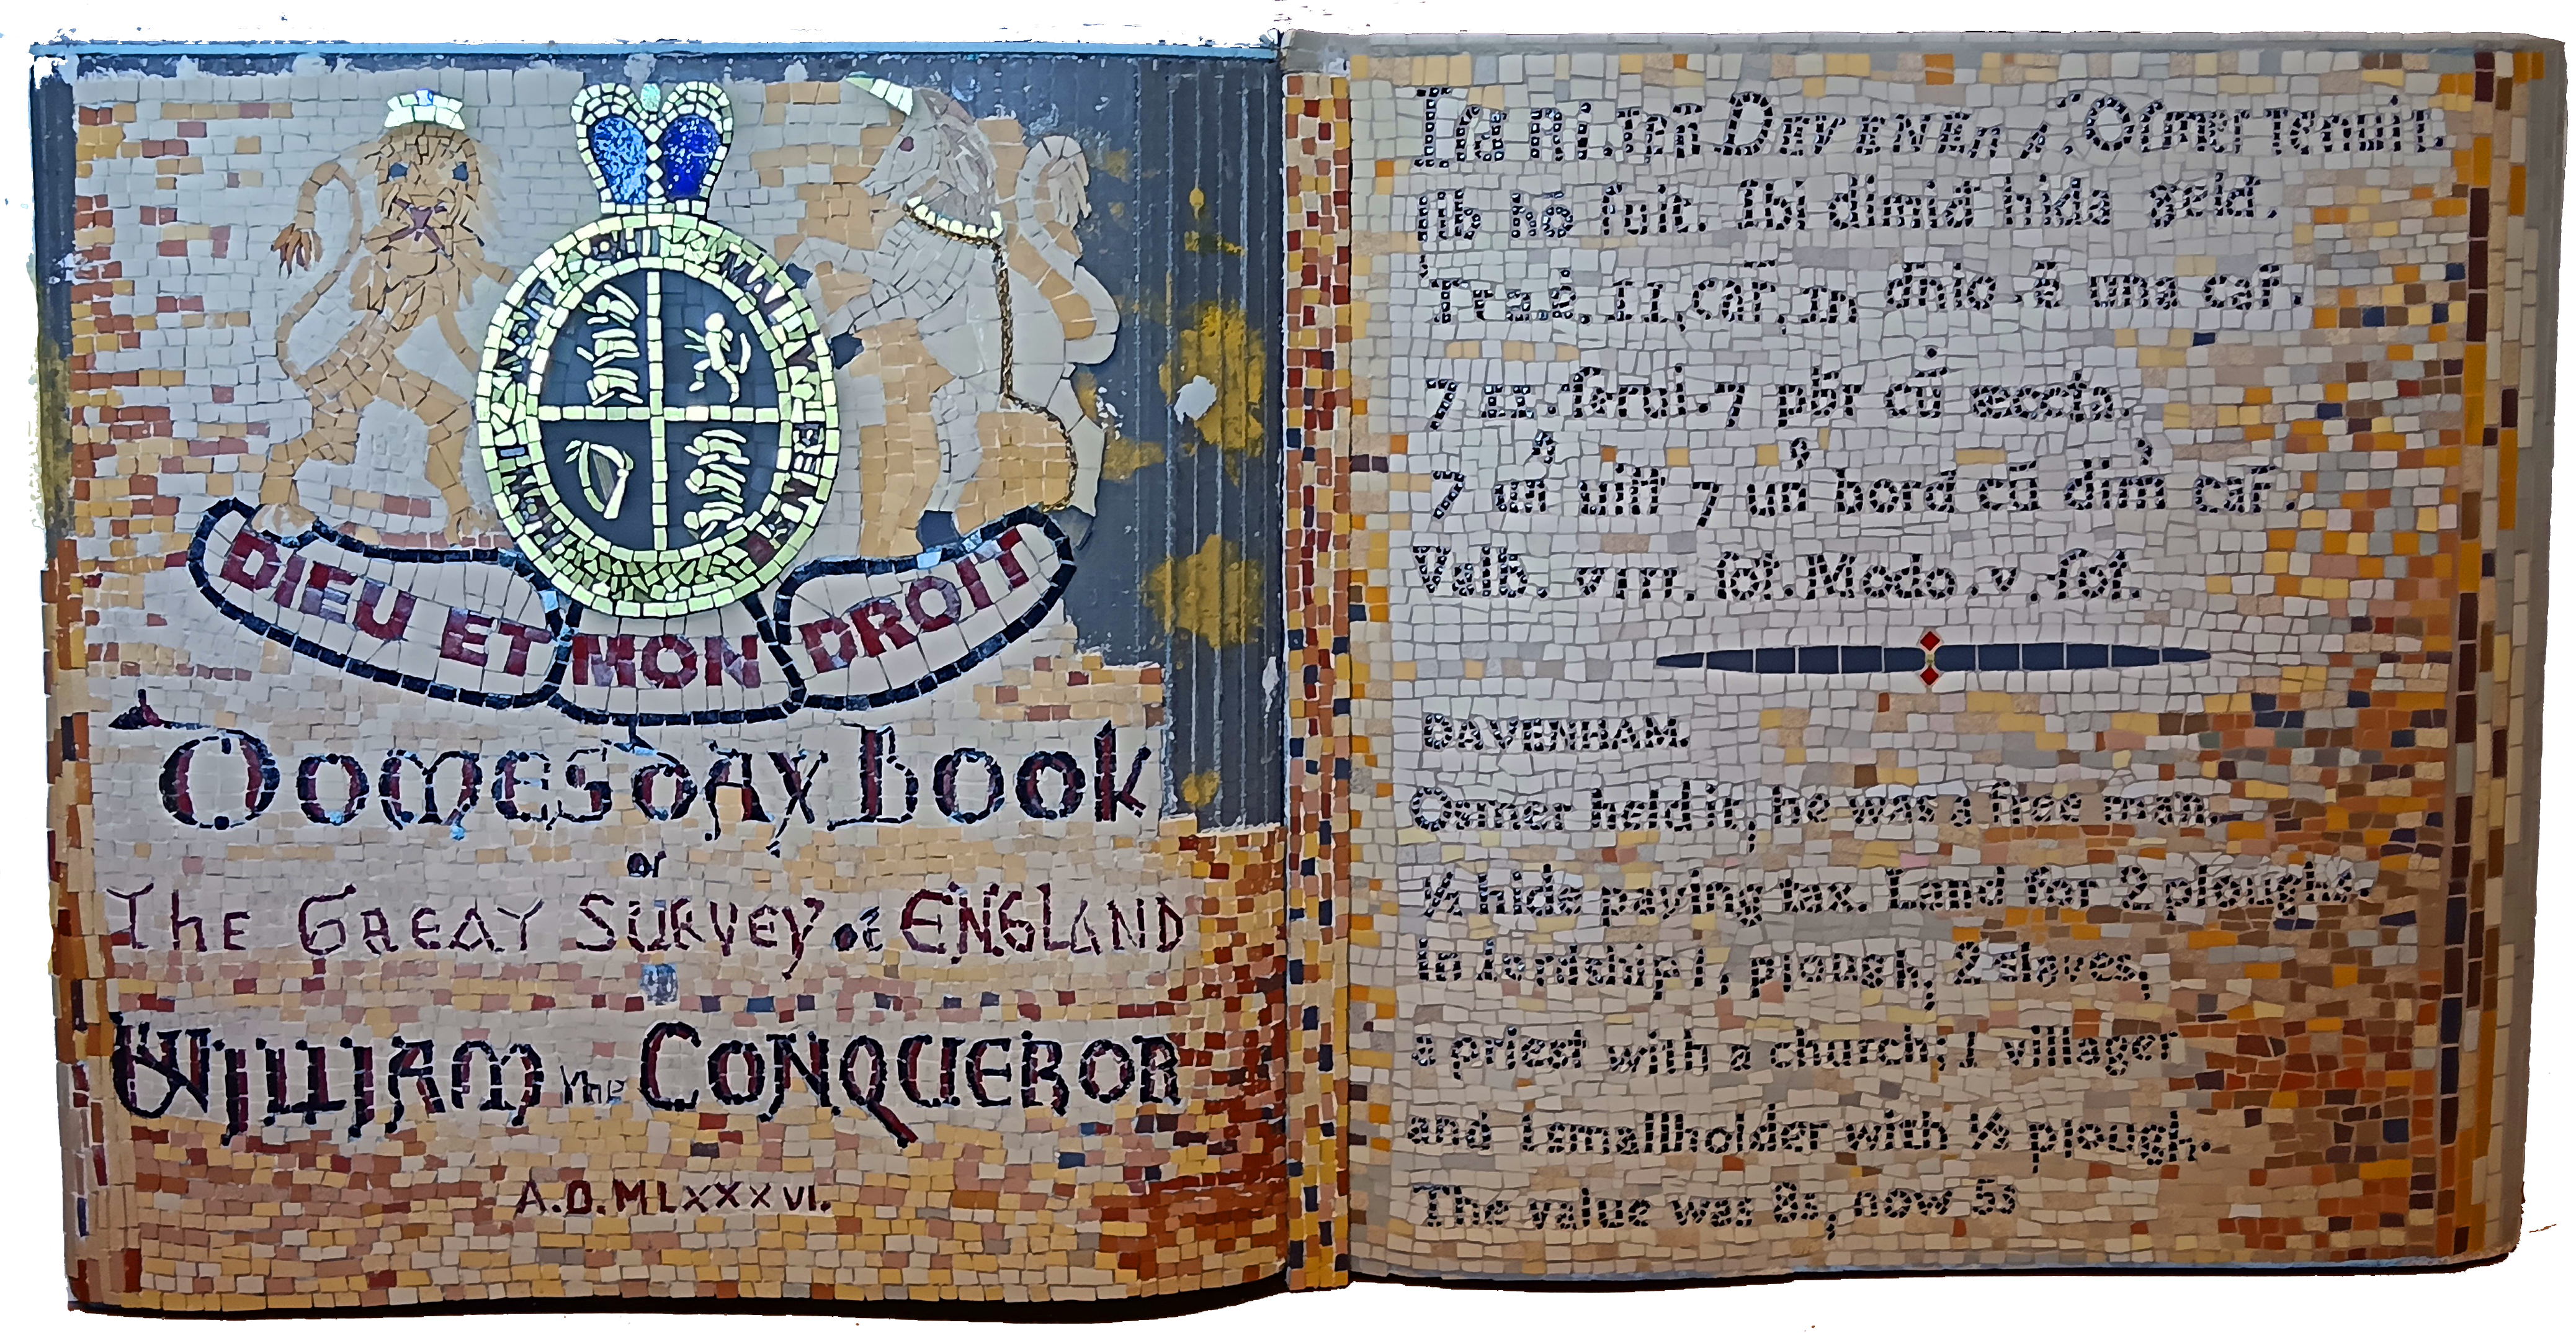 DIEU ET MON DROIT
Domesday Book
or
The GREAT SURVEY OF ENGLAND
WILLIAM the CONQUEROR
A.D. MLXXXVI.
Idē Ri. ten DEVENEh̄ɂ. Osmer Tenuit.
lib hō fuit. Ibi dimiđ hida geld.
Tra. ē. II. car̄. In dn̄io .ē una car̄.
⁊ II. serui. ⁊ pbr̄ cū æccła.
⁊ un̄ uiłł ⁊ un̄ bord cū dim̄ car̄.
Valb. VIII. soł. Modo. V. soł.
DAVENHAM.
Osmer held it, he was a free man.
½ hide paying tax. Land for 2 ploughs.
In lordship 1, plough, 2 slaves,
a priest with a church; 1 villager
and 1 smallholder with ½ plough.
The value was 8s, now 5s